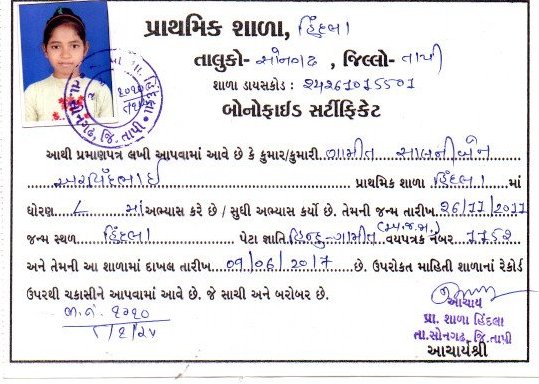 પ્રાથમિક શાળા, હિંદલા
તાલુકો- સોનગઢ , જિલ્લો- તાપી
શાળા ડાયસકોડ : ૨૪૨૬૧૦૧૫૫૦૧
બોનોફાઈડ સર્ટીફિકેટ
આથી પ્રમાણપત્ર લખી આપવામાં આવે છે કે કુમાર/કુમારી ગામીત
અરવિંદભાઈ પ્રાથમિક શાળા હિંદલા માં
ધોરણ ૮ માં અભ્યાસ કરે છે / સુધી અભ્યાસ કર્યો છે. તેમની જન્મ તારીખ 26/11/2011
જન્મ સ્થળ હિંદલા પેટા જાતિ હિન્દુ-ગામીત (અ.જ.જા.) વયપત્રક નંબર ૧૧૬૨
અને તેમની આ શાળામાં દાખલ તારીખ 09/06/2017 છે. ઉપરોકત માહિતી શાળાનાં રેકોર્ડ
ઉપરથી ચકાસીને આપવામાં આવે છે. જે સાચી અને બરોબર છે.
આચાર્ય
પ્રા. શાળા હિંદલા
તા.સોનગઢ, જિ.તાપી
આચાર્યશ્રી
તા. સોનગઢ, જિ. તાપી